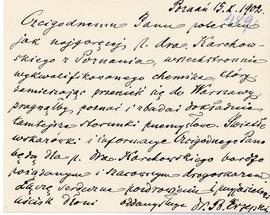 Poznań 15.X.1902.
Czcigodnemu Panu polecam
jak najgoręcej p. dra Karchow-
skiego z Poznania, wszechstronnie
wykwalifikowanego chemika, który
zamierzając przenieść się do Warszawy
pragnąłby poznać i zbadać dokładnie
tamtejsze stosunki przemysłowe. Światłe
wskazówki i informacye Czcigodnego Pana
będą dla p. dra Karchowskiego bardzo
pożądanym i szacownym drogoskazem
Łączę serdeczne pozdrowienia i przyjacielski
uścisk dłoni oddany Dr. B. Erzepki